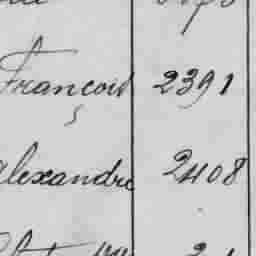 François 2391
Alexandre 2408